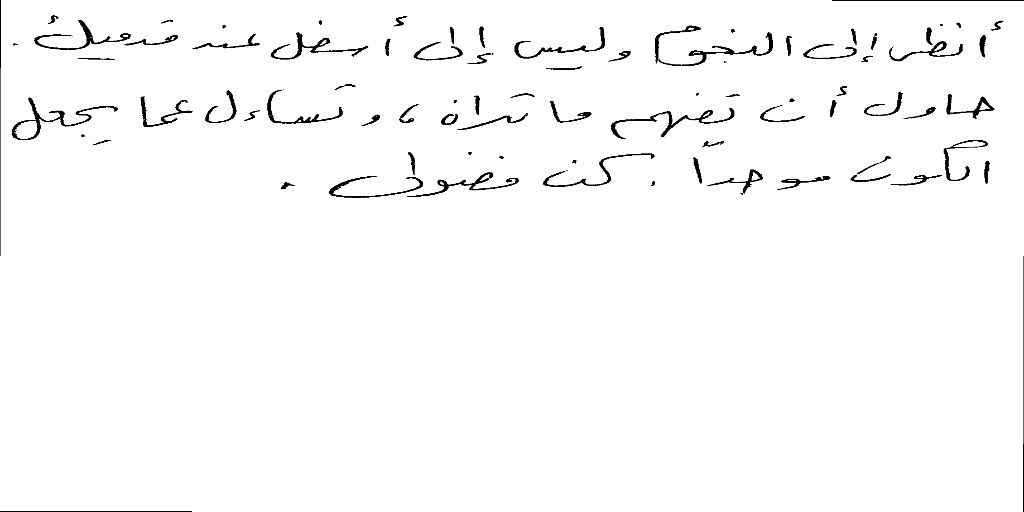 أنظر إلى النجوم وليس إلى أسفل عند قدميك.
حاول أن تفهم ما تراه، وتساءل عما يجعل
الكون موحداً. كن فضولى.